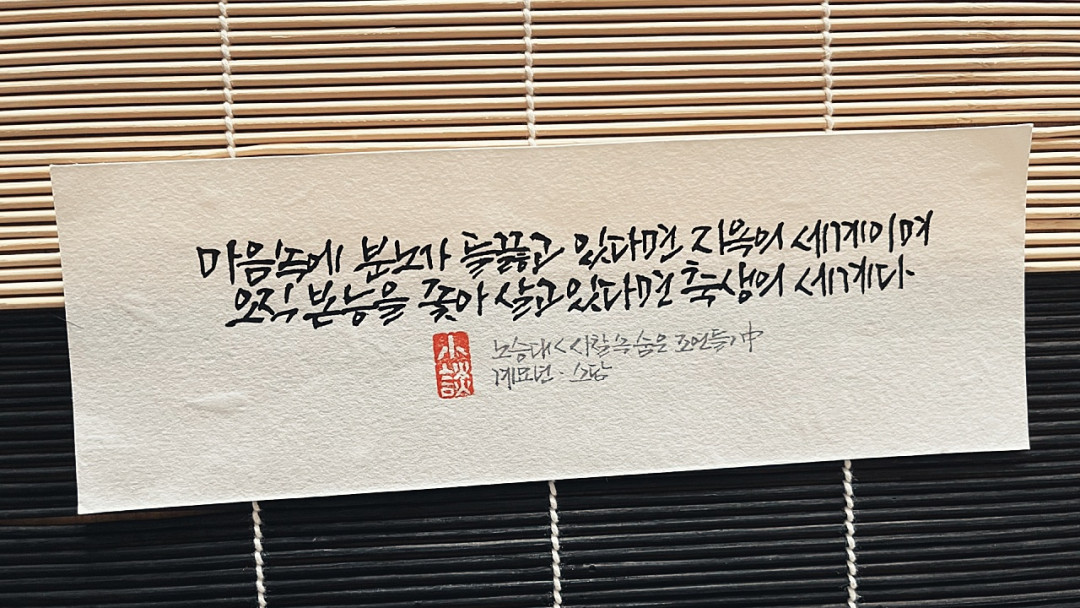 마음속에 분노가 들끓고 있다면 지옥의 세계이며
오직 본능을 좇아 살고 있다면 축생의 세계다.
노승대 <사찰 속 숨은 조연들> 中
계묘년 · 소담
小談